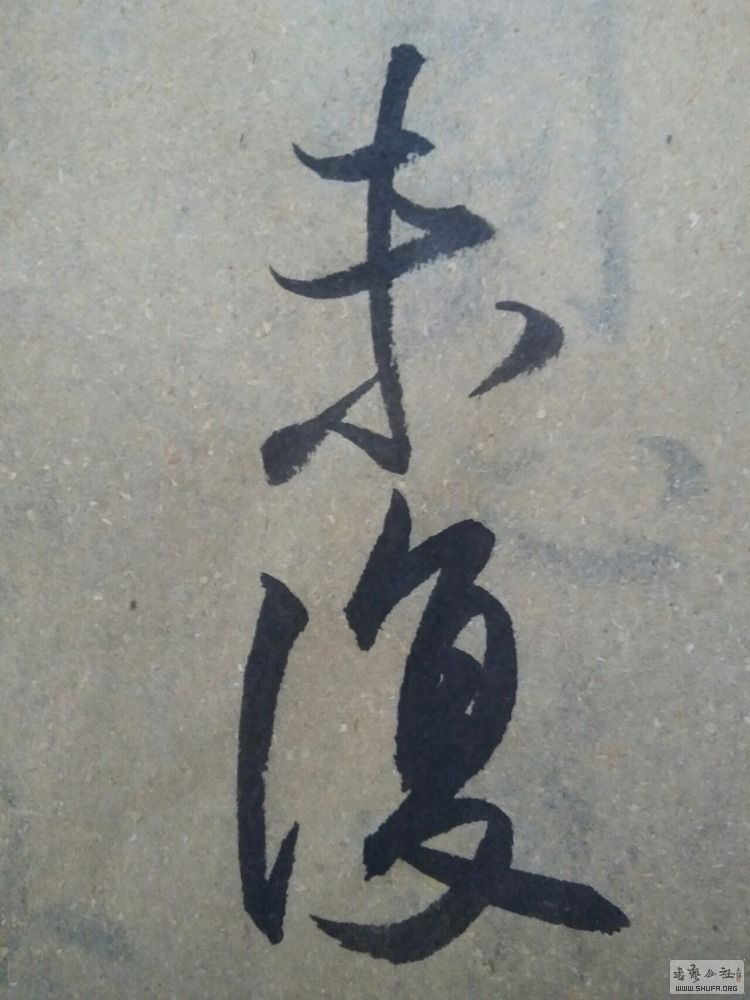 未復
书艺公社
WWW.SHUFA.ORG